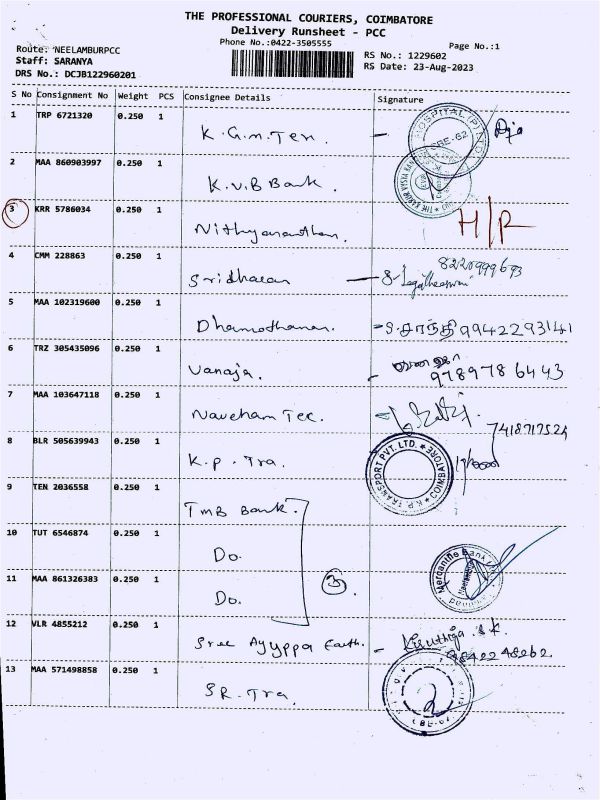 THE PROFESSIONAL COURIERS, COIMBATORE
Delivery Runsheet - PCC
Phone No.:0422-3505555
Page No.:1
Route: NEELAMBURPCC
Staff: SARANYA
DRS No.: DCJB122960201
RS No.: 1229602
RS Date: 23-Aug-2023
S No Consignment No Weight PCS Consignee Details Signature
1 TRP 6721320 0.250 1 K.G.M. Ten. -
HOSPITAL (P) CBE-62
2 MAA 860903997 0.250 1 K.V.B Bank.
THE KARUR VYSYA BANK
3 KRR 5786034 0.250 1 Nithyananthan. H/R
4 CMM 228863 0.250 1 Sridharan - 8220999693
5 MAA 102319600 0.250 1 Dhamothanan. - S.சாந்தி 9942293141
6 TRZ 305435096 0.250 1 Vanaja. - 9789786443
7 MAA 103647118 0.250 1 Naveham Tec. -
7418717524
8 BLR 505639943 0.250 1 K.P. Tra.
K.P. TRANSPORT PVT. LTD. COIMBATORE
9 TEN 2036558 0.250 1 TMB Bank.
10 TUT 6546874 0.250 1 Do.
Mercantile Bank
11 MAA 861326383 0.250 1 Do. 3.
12 VLR 4855212 0.250 1 Sree Ayyppa Earth. - Kiruthiga S.K.
9842248262
13 MAA 571498858 0.250 1 SR. Tra.